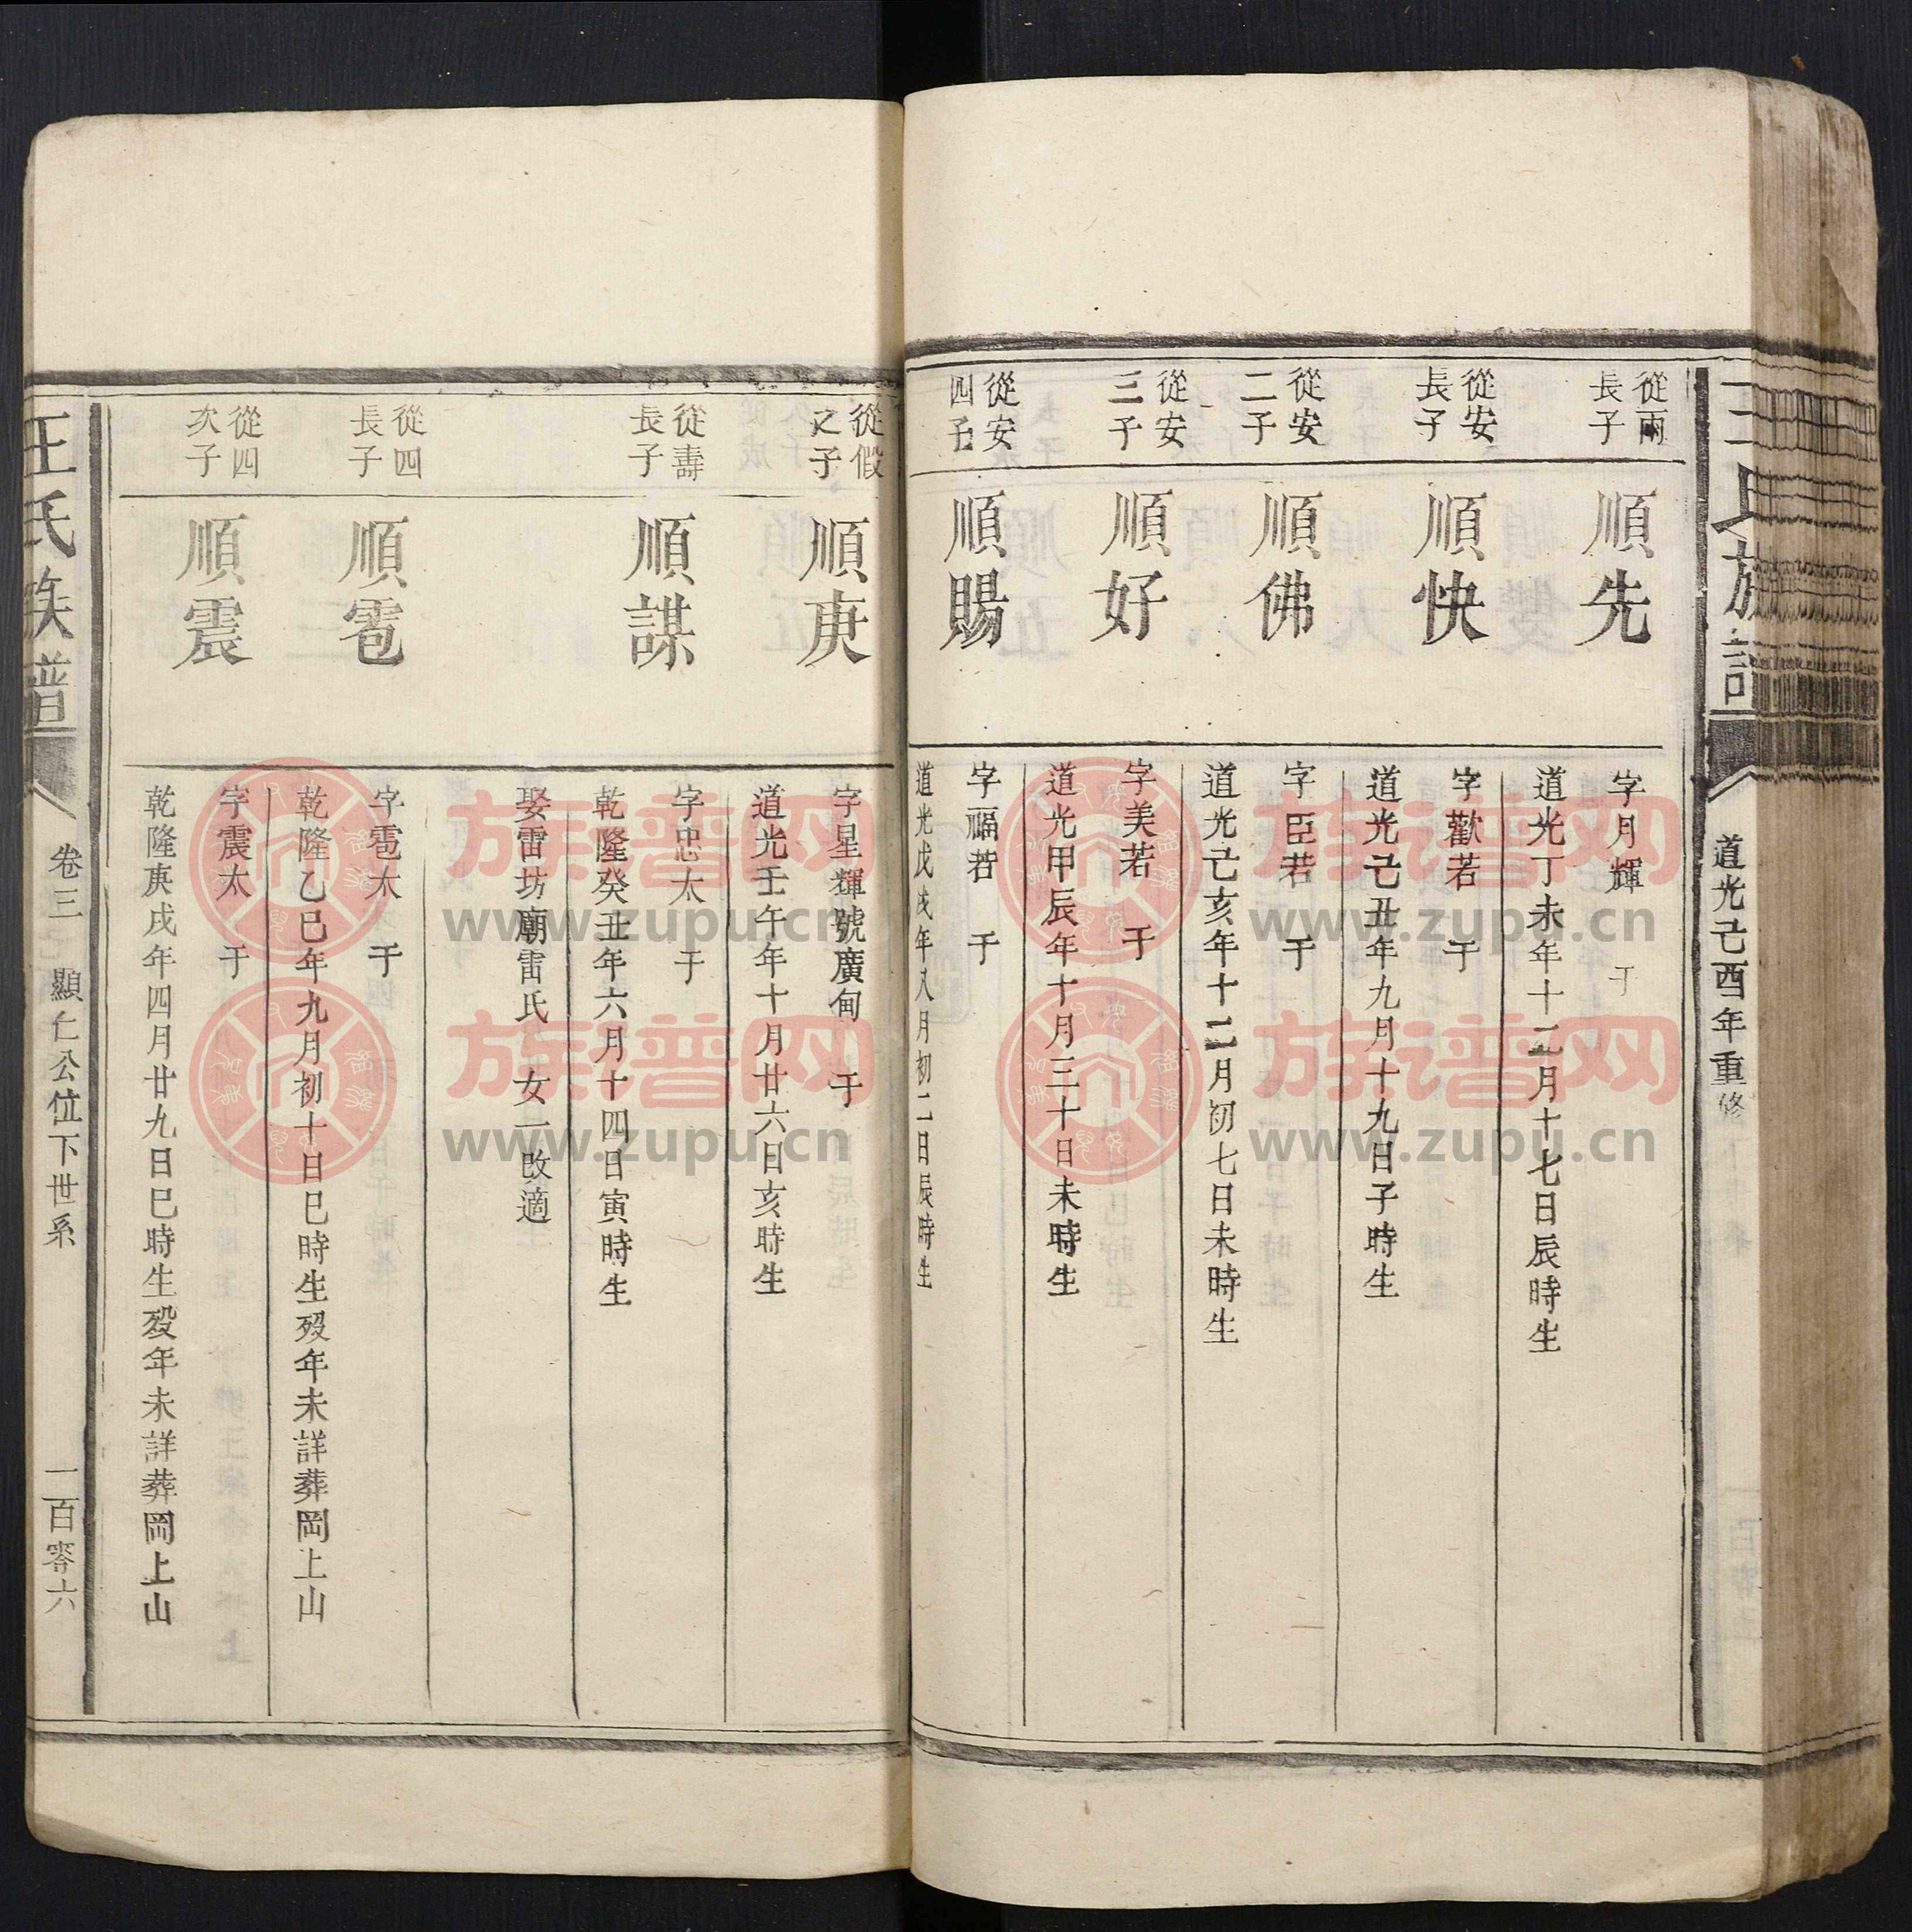 王氏族譜
道光己酉年重修
從兩
長子
順先
字月輝 于
道光丁未年十二月十七日辰時生
從安
長子
順快
字歡若 于
道光己丑年九月十九日子時生
從安
二子
順佛
字臣若 于
道光己亥年十二月初七日未時生
從安
三子
順好
字美若 于
道光甲辰年十月三十日未時生
從安
四子
順賜
字福若 于
道光戊戌年八月初二日辰時生
從假
之子
順庚
字星輝號廣甸 于
道光壬午年十月廿六日亥時生
從壽
長子
順謀
字忠太 于
乾隆癸丑年六月十四日寅時生
娶雷坊廟雷氏 女一改適
從四
長子
順雹
字雹太 于
乾隆乙巳年九月初十日巳時生歿年未詳葬岡上山
從四
次子
順震
字震太 于
乾隆庚戌年四月廿九日巳時生歿年未詳葬岡上山
王氏族譜
卷三 顯仁公位下世系 一百零六
族谱网
www.zupu.cn
族谱网
www.zupu.cn
族谱网
www.zupu.cn
族谱网
www.zupu.cn